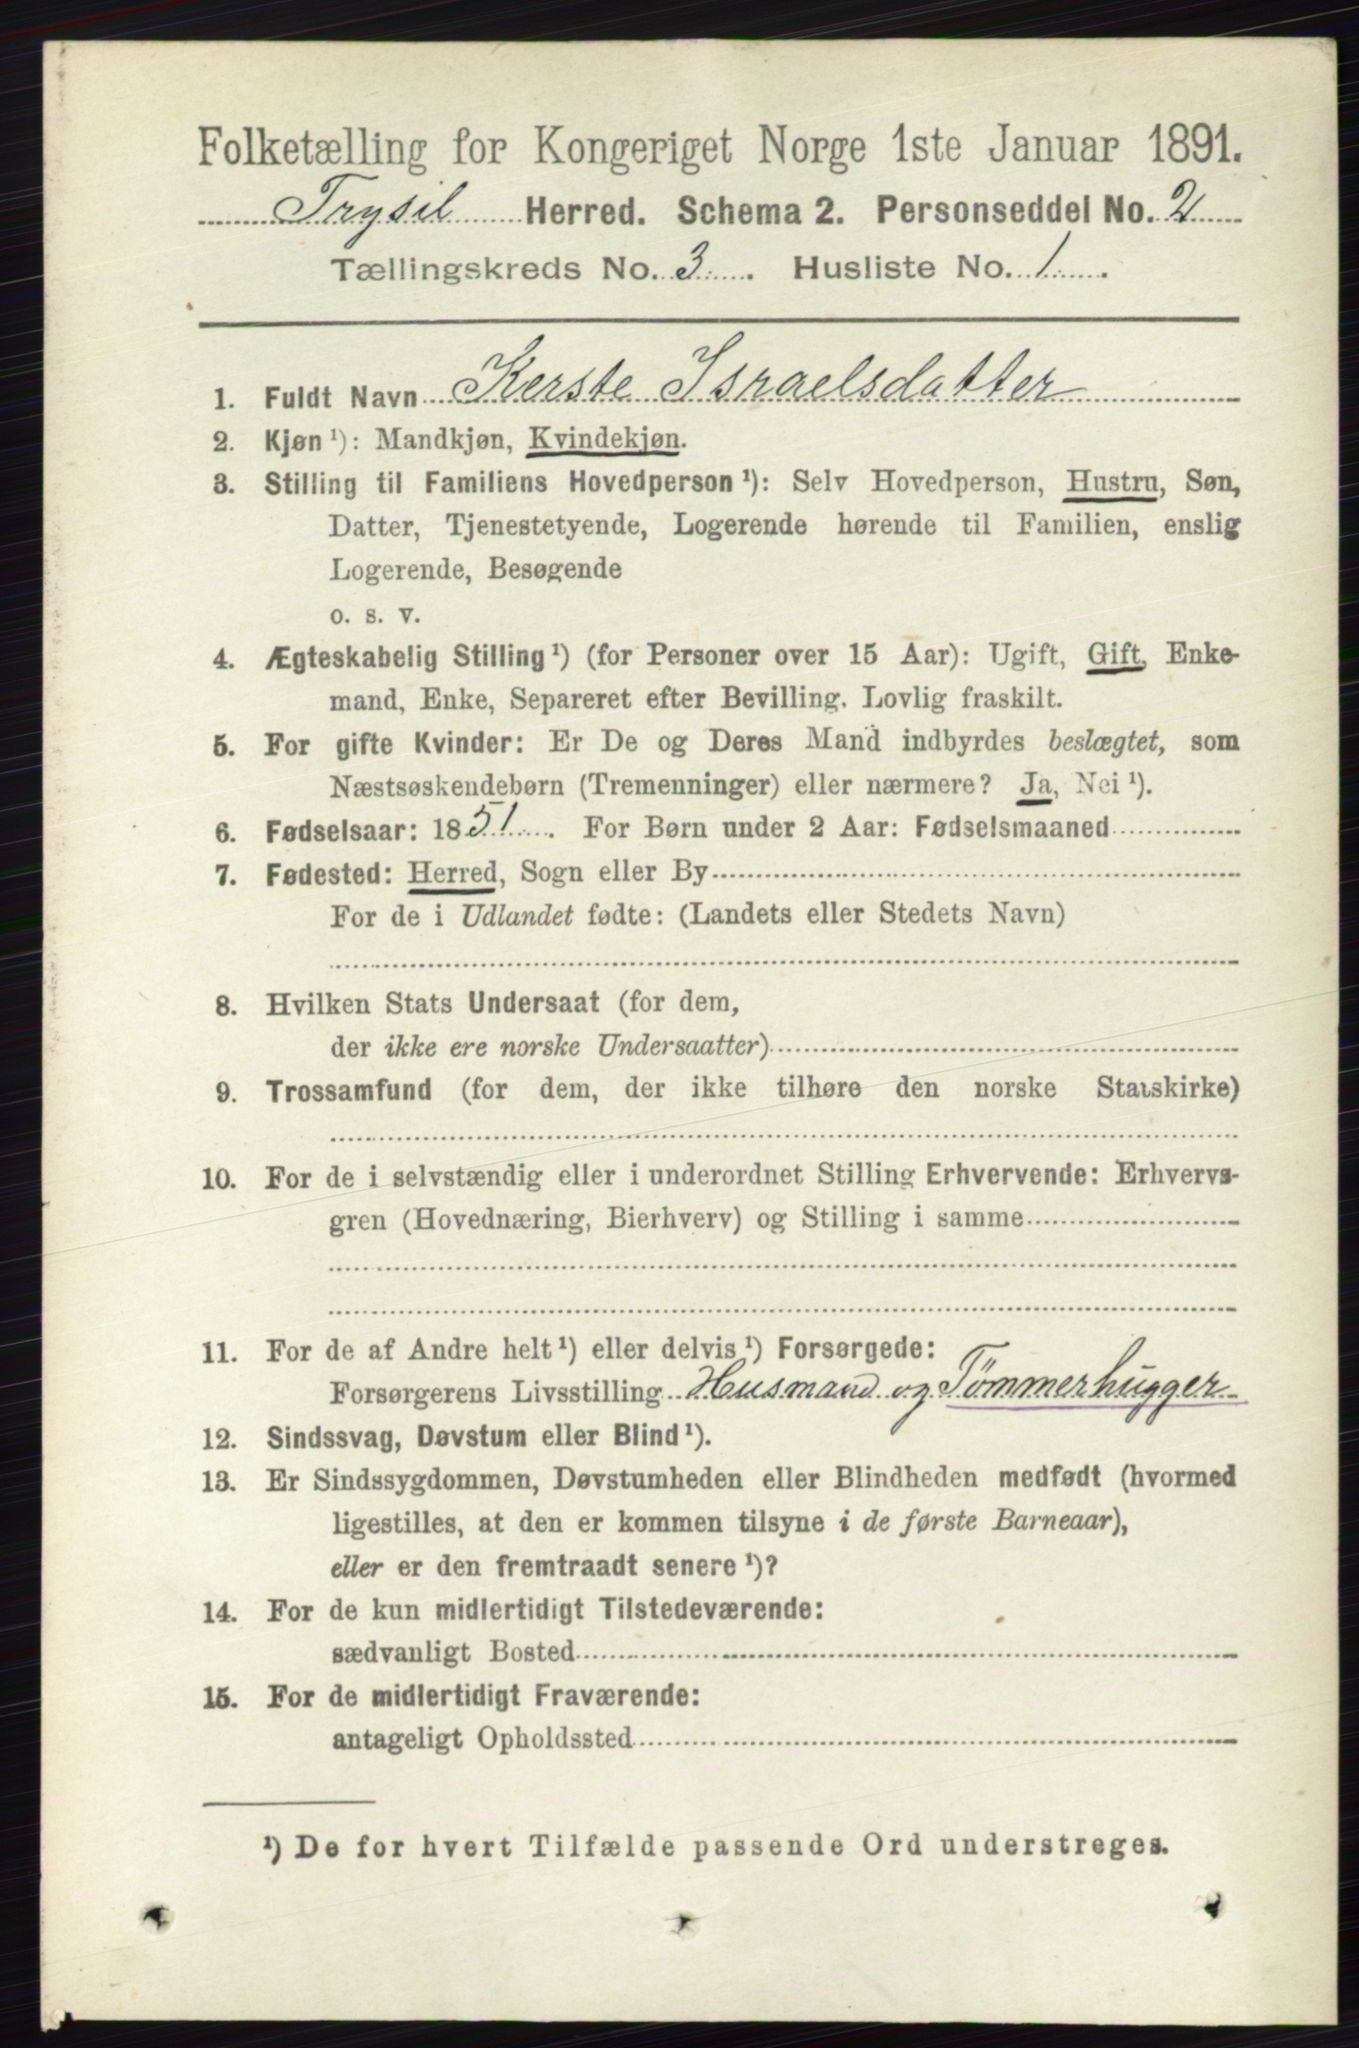 Folketælling for Kongeriget Norge 1ste Januar 1891.
Trysil Herred. Schema 2. Personseddel No. 2
Tællingskreds No. 3. Husliste No. 1.
1. Fuldt Navn Kerste Israelsdatter
2. Kjøn ¹): Mandkjøn, Kvindekjøn.
3. Stilling til Familiens Hovedperson ¹): Selv Hovedperson, Hustru, Søn,
Datter, Tjenestetyende, Logerende hørende til Familien, enslig
Logerende, Besøgende
o. s. v.
4. Ægteskabelig Stilling ¹) (for Personer over 15 Aar): Ugift, Gift, Enke-
mand, Enke, Separeret efter Bevilling. Lovlig fraskilt.
5. For gifte Kvinder: Er De og Deres Mand indbyrdes beslægtet, som
Næstsøskendebørn (Tremenninger) eller nærmere? Ja, Nei ¹).
6. Fødselsaar: 1851. For Børn under 2 Aar: Fødselsmaaned
7. Fødested: Herred, Sogn eller By
For de i Udlandet fødte: (Landets eller Stedets Navn)
8. Hvilken Stats Undersaat (for dem,
der ikke ere norske Undersaatter)
9. Trossamfund (for dem, der ikke tilhøre den norske Statskirke)
10. For de i selvstændig eller i underordnet Stilling Erhvervende: Erhvervs-
gren (Hovednæring, Bierhverv) og Stilling i samme
11. For de af Andre helt ¹) eller delvis ¹) Forsørgede:
Forsørgerens Livsstilling Husmand og Tømmerhugger
12. Sindssvag, Døvstum eller Blind ¹).
13. Er Sindssygdommen, Døvstumheden eller Blindheden medfødt (hvormed
ligestilles, at den er kommen tilsyne i de første Barneaar),
eller er den fremtraadt senere ¹)?
14. For de kun midlertidigt Tilstedeværende:
sædvanligt Bosted
15. For de midlertidigt Fraværende:
antageligt Opholdssted
¹) De for hvert Tilfælde passende Ord understreges.